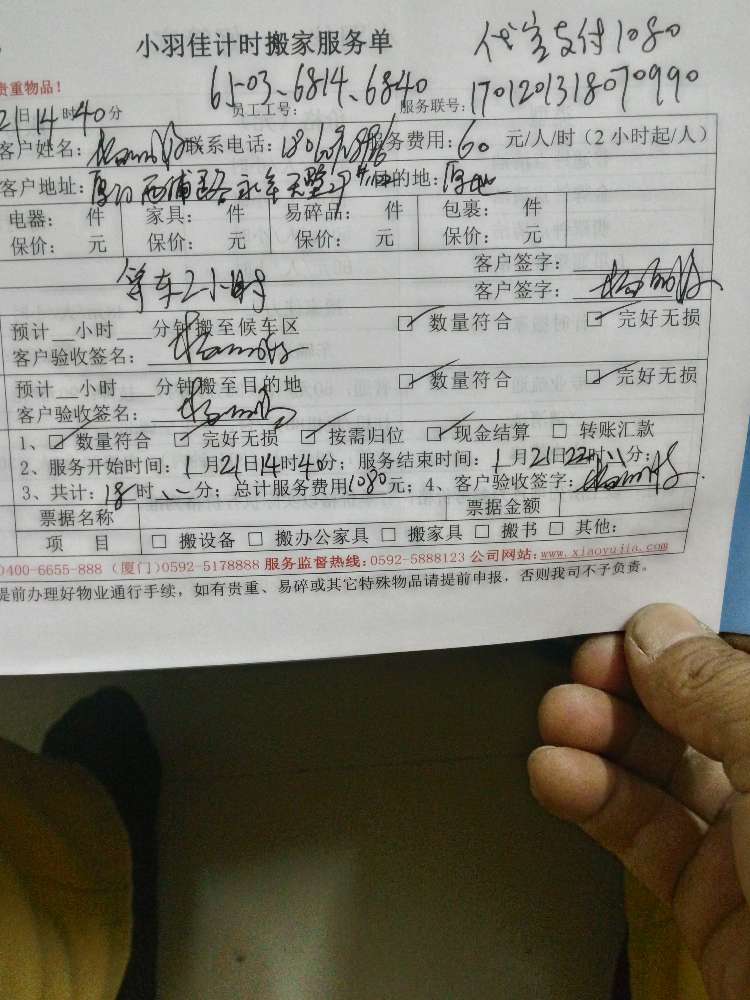 小羽佳计时搬家服务单
支付1080
贵重物品！
6503、6814、6840
员工工号：
服务联号：170120131807099​0
21日14时40分
客户姓名： 联系电话： 服务费用：60 元/人/时（2小时起/人）
客户地址： 目的地：原地
电器： 件 家具： 件 易碎品： 件 包裹： 件
保价： 元 保价： 元 保价： 元 保价： 元
停车2小时
客户签字：
客户签字：
预计__小时___分钟搬至候车区 ☑ 数量符合 ☑ 完好无损
客户验收签名：
预计__小时___分钟搬至目的地 ☑ 数量符合 ☑ 完好无损
客户验收签名：
1、☑ 数量符合 ☑ 完好无损 ☑ 按需归位 ☑ 现金结算 □ 转账汇款
2、服务开始时间：1月21日14时40分；服务结束时间：1月21日22时 分；
3、共计：18时 分；总计服务费用1080元；4、客户验收签字：
票据名称 票据金额
项 目 □ 搬设备 □ 搬办公家具 □ 搬家具 □ 搬书 □ 其他：
0400-6655-888（厦门）0592-5178888 服务监督热线：0592-5888123 公司网站：www.xiaoyujia.com
提前办理好物业通行手续，如有贵重、易碎或其它特殊物品请提前申报，否则我司不予负责。